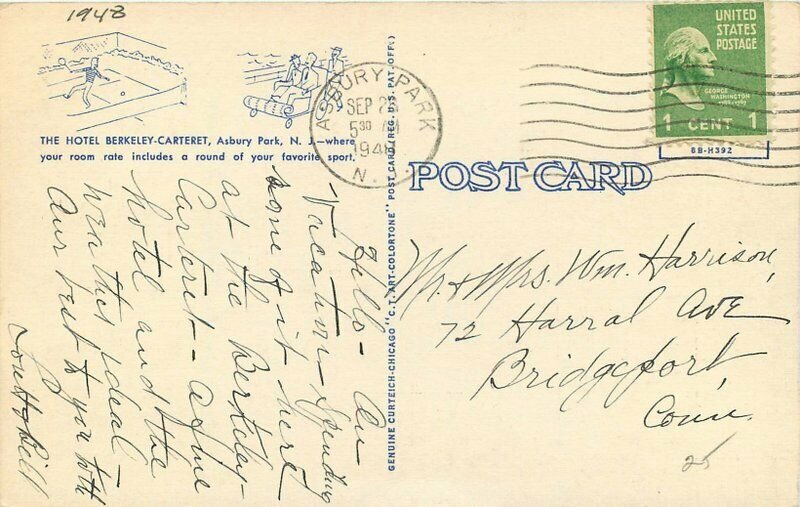 1948
THE HOTEL BERKELEY-CARTERET, Asbury Park, N. J.—where
your room rate includes a round of your favorite sport.
Hello- On
Vacation- Spending
some of it here
at the Berkeley-
Carteret- a fine
hotel and the
weather ideal-
Our best to you both
Bill
GENUINE CURTEICH-CHICAGO "C.T. ART-COLORTONE" POST CARD (REG. U.S. PAT. OFF.)
ASBURY PARK
SEP
5 30 AM
194
N. J.
UNITED
STATES
POSTAGE
GEORGE
WASHINGTON
1789-1797
1 CENT 1
8B-H392
POST CARD
Mr. & Mrs. Wm. Harrison,
72 Harral Ave
Bridgeport,
Conn.
25